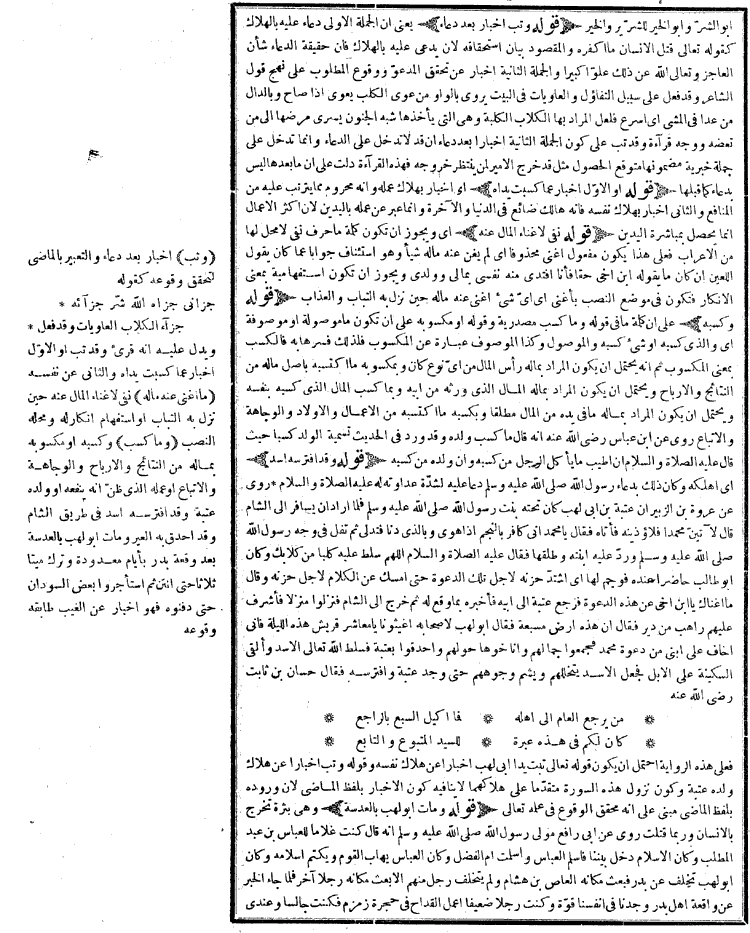 ابو الشر وابو الخير للشرير والخير ﴿قوله وتب اخبار بعد دعاء﴾ يعنى ان الجملة الاولى دعاء عليه بالهلاك
كقوله تعالى قتل الانسان ما اكفره والمقصود بيان استحقاقه لان يدعى عليه بالهلاك فان حقيقة الدعاء شأن
العاجز وتعالى الله عن ذلك علوا كبيرا والجملة الثانية اخبار عن تحقق المدعو ووقوع المطلوب على نهج قول
الشاعر وقد فعل على سبيل التفاؤل والعاويات فى البيت يروى بالواو من عوى الكلب يعوى اذا صاح وبالدال
من عدا فى المشى اى اسرع فلعل المراد بها الكلاب الكلبة وهى التى يأخذها شبه الجنون يسرى مرضها الى من
تعضه ووجه قرآءة وقد تب على كون الجملة الثانية اخبارا بعد دعاء ان قد لا تدخل على الدعاء وانما تدخل على
جملة خبرية مضمونها متوقع الحصول مثل قد خرج الامير لمن ينتظر خروجه فهذه القرآءة دلت على ان ما بعدها ليس
بدعاء كما قبلها ﴿قوله او الاول اخبار عما كسبت يداه﴾ اى اخبار بهلاك عمله وانه محروم مما يترتب عليه من
المنافع والثانى اخبار بهلاك نفسه فانه هالك ضائع فى الدنيا والآخرة وانما عبر عن عمله باليدين لان اكثر الاعمال
انما يحصل بمباشرة اليدين ﴿قوله نفى لاغناء المال عنه﴾ اى ويجوز ان تكون كلمة ما حرف نفى لا محل لها
من الاعراب فعلى هذا يكون مفعول اغنى محذوفا اى لم يغن عنه ماله شيأ وهو استئناف جوابا عما كان يقول
اللعين ان كان ما يقوله ابن اخى حقا فأنا افتدى منه نفسى بمالى وولدى ويجوز ان تكون استفهامية بمعنى
الانكار فتكون فى موضع النصب بأغنى اى اى شئ اغنى عنه ماله حين نزل به التباب والعذاب ﴿قوله
وكسبه﴾ على ان كلمة ما فى قوله وما كسب مصدرية وقوله او مكسوبه على ان تكون ما موصولة او موصوفة
اى والذى كسبه او شئ كسبه والموصول وكذا الموصوف عبارة عن المكسوب فلذلك فسرها به فالكسب
بمعنى المكسوب ثم انه يحتمل ان يكون المراد بماله رأس المال من اى نوع كان وبمكسوبه ما اكتسبه باصل ماله من
النتائج والارباح ويحتمل ان يكون المراد بماله المال الذى ورثه من ابيه وبما كسب المال الذى كسبه بنفسه
ويحتمل ان يكون المراد بماله ما فى يده من المال مطلقا وبكسبه ما اكتسبه من الاعمال والاولاد والوجاهة
والاتباع روى عن ابن عباس رضى الله عنه انه قال ما كسب ولده وقد ورد فى الحديث تسمية الولد كسبا حيث
قال عليه الصلاة والسلام ان اطيب ما يأكل الرجل من كسبه وان ولده من كسبه ﴿قوله وقد افترسه اسد﴾
اى اهلكه وكان ذلك بدعاء رسول الله صلى الله عليه وسلم دعا عليه لشدة عداوته له عليه الصلاة والسلام * روى
عن عروة بن الزبير ان عتبة بن ابى لهب كان تحته بنت رسول الله صلى الله عليه وسلم فلما اراد ان يسافر الى الشام
قال لآتين محمدا فلأوذينه فأتاه فقال يا محمد انى كافر بالنجم اذا هوى وبالذى دنا فتدلى ثم تفل فى وجه رسول الله
صلى الله عليه وسلم ورد عليه ابنته وطلقها فقال عليه الصلاة والسلام اللهم سلط عليه كلبا من كلابك وكان
ابو طالب حاضرا عنده فوجم لها اى اشتد حزنه لاجل تلك الدعوة حتى امسك عن الكلام لاجل حزنه وقال
ما اغناك يا ابن اخى عن هذه الدعوة فرجع عتبة الى ابيه فأخبره بما وقع له ثم خرج الى الشام فنزلوا منزلا فأشرف
عليهم راهب من دير فقال ان هذه ارض مسبعة فقال ابو لهب لاصحابه اغيثونا يا معاشر قريش هذه الليلة فانى
اخاف على ابنى من دعوة محمد فجمعوا جمالهم واناخوها حولهم واحدقوا بعتبة فسلط الله تعالى الاسد وألقى
السكينة على الابل فجعل الاسد يتخللهم ويشم وجوههم حتى وجد عتبة وافترسه فقال حسان بن ثابت
رضى الله عنه
* من يرجع العام الى اهله * فما اكيل السبع بالراجع *
* كان لكم فى هذه عبرة * للسيد المتبوع والتابع *
فعلى هذه الرواية احتمل ان يكون قوله تعالى تبت يدا ابى لهب اخبارا عن هلاك نفسه وقوله وتب اخبارا عن هلاك
ولده عتبة وكون نزول هذه السورة متقدما على هلاكهما لا ينافيه كون الاخبار بلفظ الماضى لان وروده
بلفظ الماضى مبنى على انه محقق الوقوع فى علمه تعالى ﴿قوله ومات ابو لهب بالعدسة﴾ وهى بثرة تخرج
بالانسان وربما قتلت روى عن ابى رافع مولى رسول الله صلى الله عليه وسلم انه قال كنت غلاما للعباس بن عبد
المطلب وكان الاسلام دخل بيتنا فاسلم العباس واسلمت ام الفضل وكان العباس يهاب القوم ويكتم اسلامه وكان
ابو لهب تخلف عن بدر فبعث مكانه العاص بن هشام ولم يتخلف رجل منهم الا بعث مكانه رجلا آخر فلما جاء الخبر
عن واقعة اهل بدر وجدنا فى انفسنا قوة وكنت رجلا ضعيفا اعمل القداح فى حجرة زمزم فكنت جالسا وعندى
(وتب) اخبار بعد دعاء والتعبير بالماضى
لتحقق وقوعه كقوله
جزانى جزاه الله شر جزآئه *
جزآء الكلاب العاويات وقد فعل *
ويدل عليه انه قرئ وقد تب او الاول
اخبار عما كسبت يداه والثانى عن نفسه
(ما اغنى عنه ماله) نفى لاغناء المال عنه حين
نزل به التباب او استفهام انكار له ومحله
النصب (وما كسب) وكسبه او مكسوبه
بماله من النتائج والارباح والوجاهة
والاتباع او عمله الذى ظن انه ينفعه او ولده
عتبة وقد افترسه اسد فى طريق الشام
وقد احدق به العير ومات ابو لهب بالعدسة
بعد وقعة بدر بأيام معدودة وترك ميتا
ثلاثا حتى انتن ثم استأجروا بعض السودان
حتى دفنوه فهو اخبار عن الغيب طابقه
وقوعه